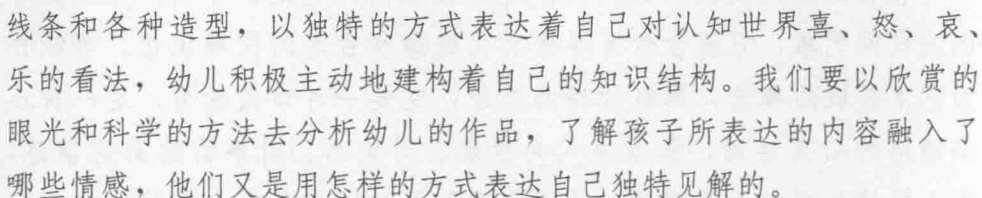 线条和各种造型，以独特的方式表达着自己对认知世界喜、怒、哀、
乐的看法，幼儿积极主动地建构着自己的知识结构。我们要以欣赏的
眼光和科学的方法去分析幼儿的作品，了解孩子所表达的内容融入了
哪些情感，他们又是用怎样的方式表达自己独特见解的。